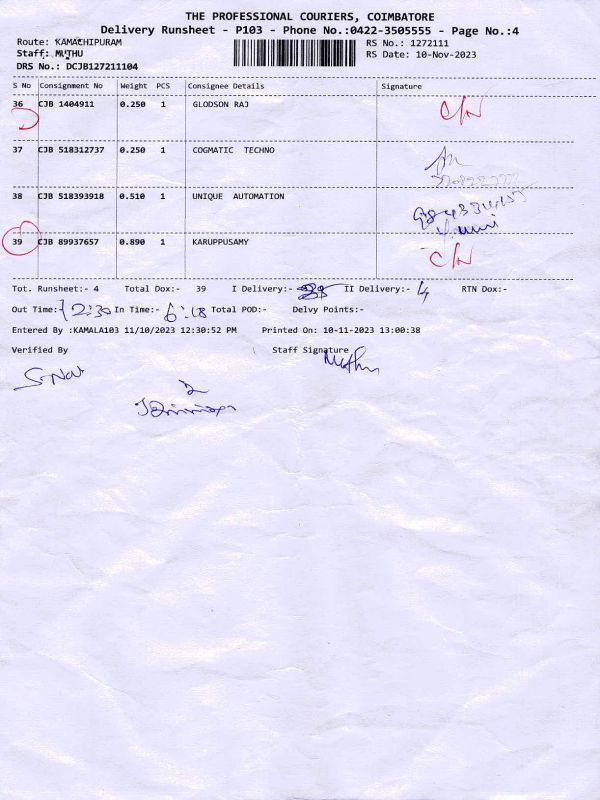 THE PROFESSIONAL COURIERS, COIMBATORE
Delivery Runsheet - P103 - Phone No.:0422-3505555 - Page No.:4
Route: KAMACHIPURAM RS No.: 1272111
Staff: MUTHU RS Date: 10-Nov-2023
DRS No.: DCJB127211104
S No Consignment No Weight PCS Consignee Details Signature
36 CJB 1404911 0.250 1 GLODSON RAJ C/N
37 CJB 518312737 0.250 1 COGMATIC TECHNO
38 CJB 518393918 0.510 1 UNIQUE AUTOMATION
39 CJB 89937657 0.890 1 KARUPPUSAMY C/N
Tot. Runsheet:- 4 Total Dox:- 39 I Delivery:- II Delivery:- 4 RTN Dox:-
Out Time:- 12:30 In Time:- 6:18 Total POD:- Delvy Points:-
Entered By :KAMALA103 11/10/2023 12:30:52 PM Printed On: 10-11-2023 13:00:38
Verified By Staff Signature
Muthu